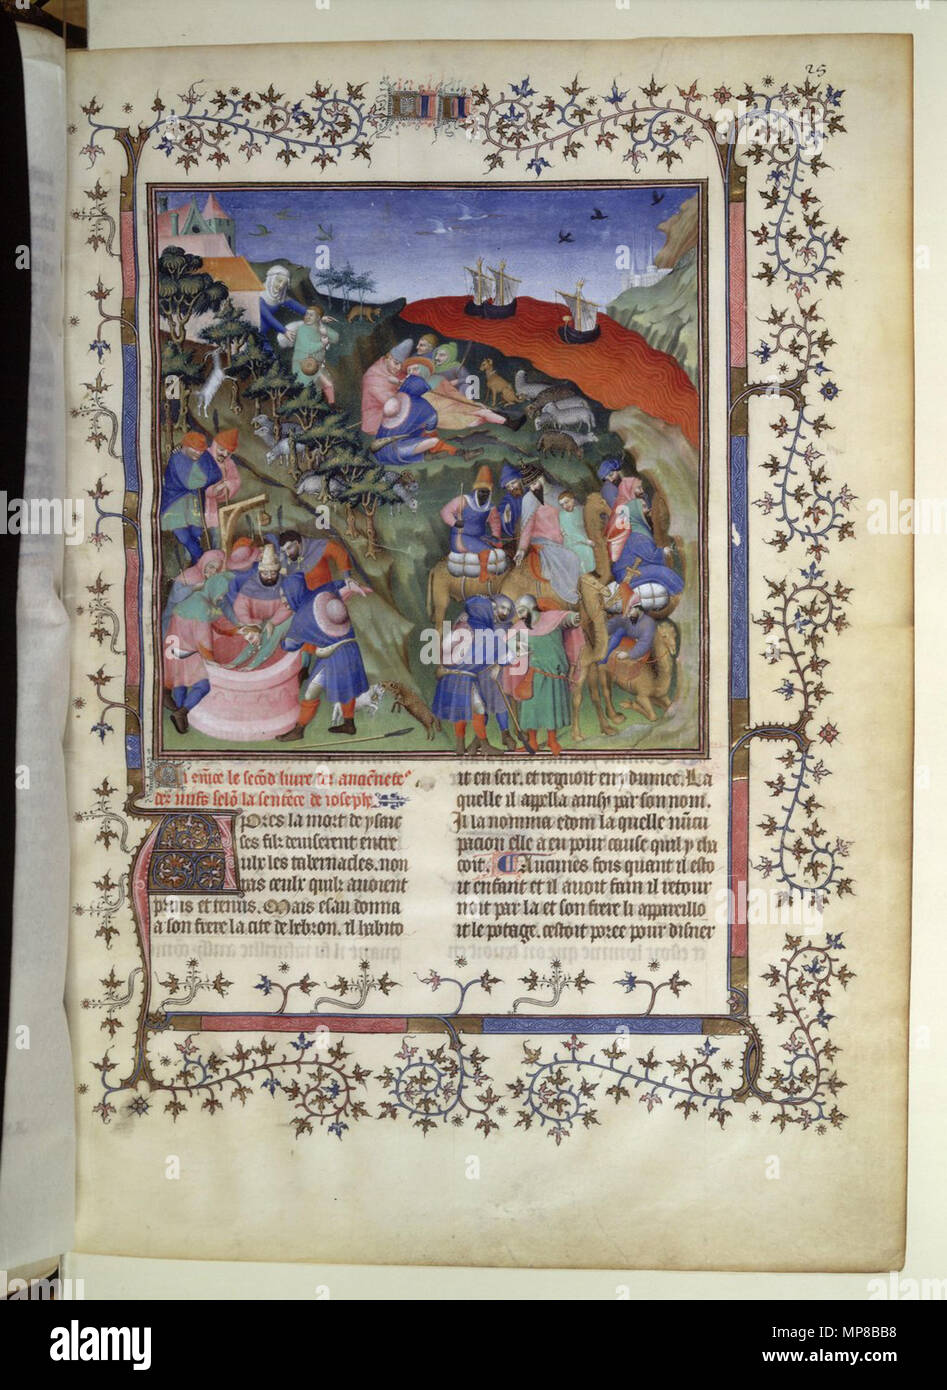 25
Ci cōmēce le secōd livre des anciēnetes
des iuifs selō la sentēce de ioseph.
Apres la mort de ysaac
ses filz deviserent entre
eulx les tabernacles. non
pas ceulx quilz avoient
prins et tenus. Mais esau donna
a son frere la cite de hebron. Il habito
it en seir. et regnoit en ydumee. La
quelle il appella ainsy par son nom.
Il la nomma edom la quelle nūcu
pacion elle a eu pour cause quil y cha
coit. Aucunes fois quant il esto
it enfant et il avoit fain il retour
noit par la et son frere li appareillo
it le potage. cestoit poree pour disner
alamy
alamy
Image ID: MP8BB8
www.alamy.com